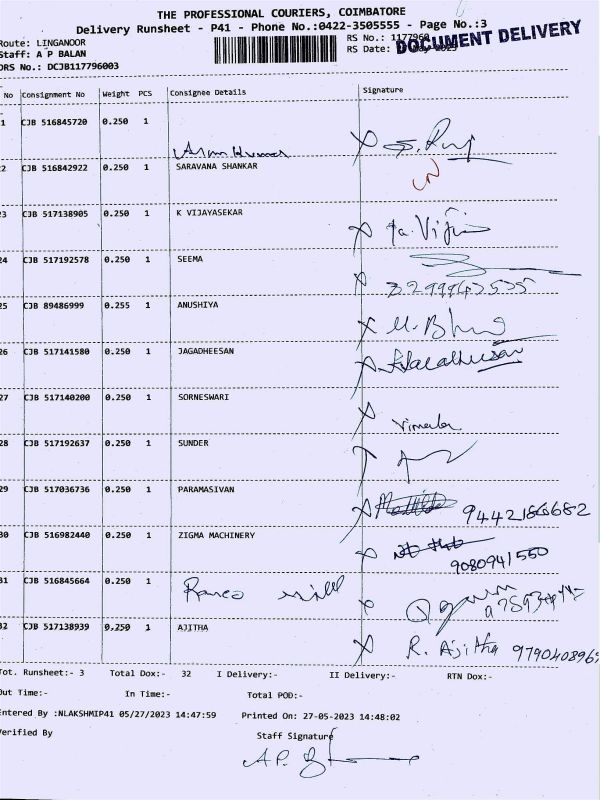 THE PROFESSIONAL COURIERS, COIMBATORE
Delivery Runsheet - P41 - Phone No.:0422-3505555 - Page No.:3
Route: LINGANOOR RS No.: 1177960
Staff: A P BALAN RS Date: May-2023 DOCUMENT DELIVERY
DRS No.: DCJB117796003
No Consignment No Weight PCS Consignee Details Signature
1 CJB 516845720 0.250 1
Arun Kumar
2 CJB 516842922 0.250 1 SARAVANA SHANKAR
3 CJB 517138905 0.250 1 K VIJAYASEKAR
24 CJB 517192578 0.250 1 SEEMA
25 CJB 89486999 0.255 1 ANUSHIYA
26 CJB 517141580 0.250 1 JAGADHEESAN
27 CJB 517140200 0.250 1 SORNESWARI
Vimala
28 CJB 517192637 0.250 1 SUNDER
29 CJB 517036736 0.250 1 PARAMASIVAN
9442186682
30 CJB 516982440 0.250 1 ZIGMA MACHINERY
9080941550
31 CJB 516845664 0.250 1
32 CJB 517138939 0.250 1 AJITHA
R. Ajitha 979040896
Tot. Runsheet:- 3 Total Dox:- 32 I Delivery:- II Delivery:- RTN Dox:-
Out Time:- In Time:- Total POD:-
Entered By :NLAKSHMIP41 05/27/2023 14:47:59 Printed On: 27-05-2023 14:48:02
Verified By Staff Signature
A.P.